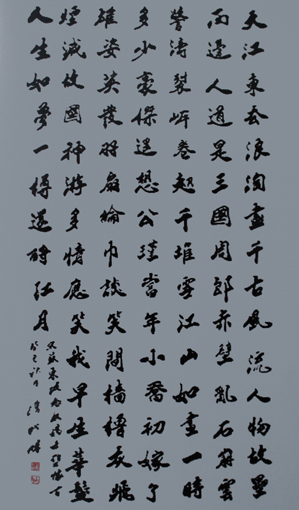 大江東去浪淘盡千古風流人物故壘
西邊人道是三國周郎赤壁亂石崩雲
驚濤裂岸卷起千堆雪江山如畫一時
多少豪傑遙想公瑾當年小喬初嫁了
雄姿英發羽扇綸巾談笑間檣櫓灰飛
煙滅故國神游多情應笑我早生華髮
人生如夢一樽還酹江月
蘇東坡念奴嬌赤壁懷古
癸巳秋月